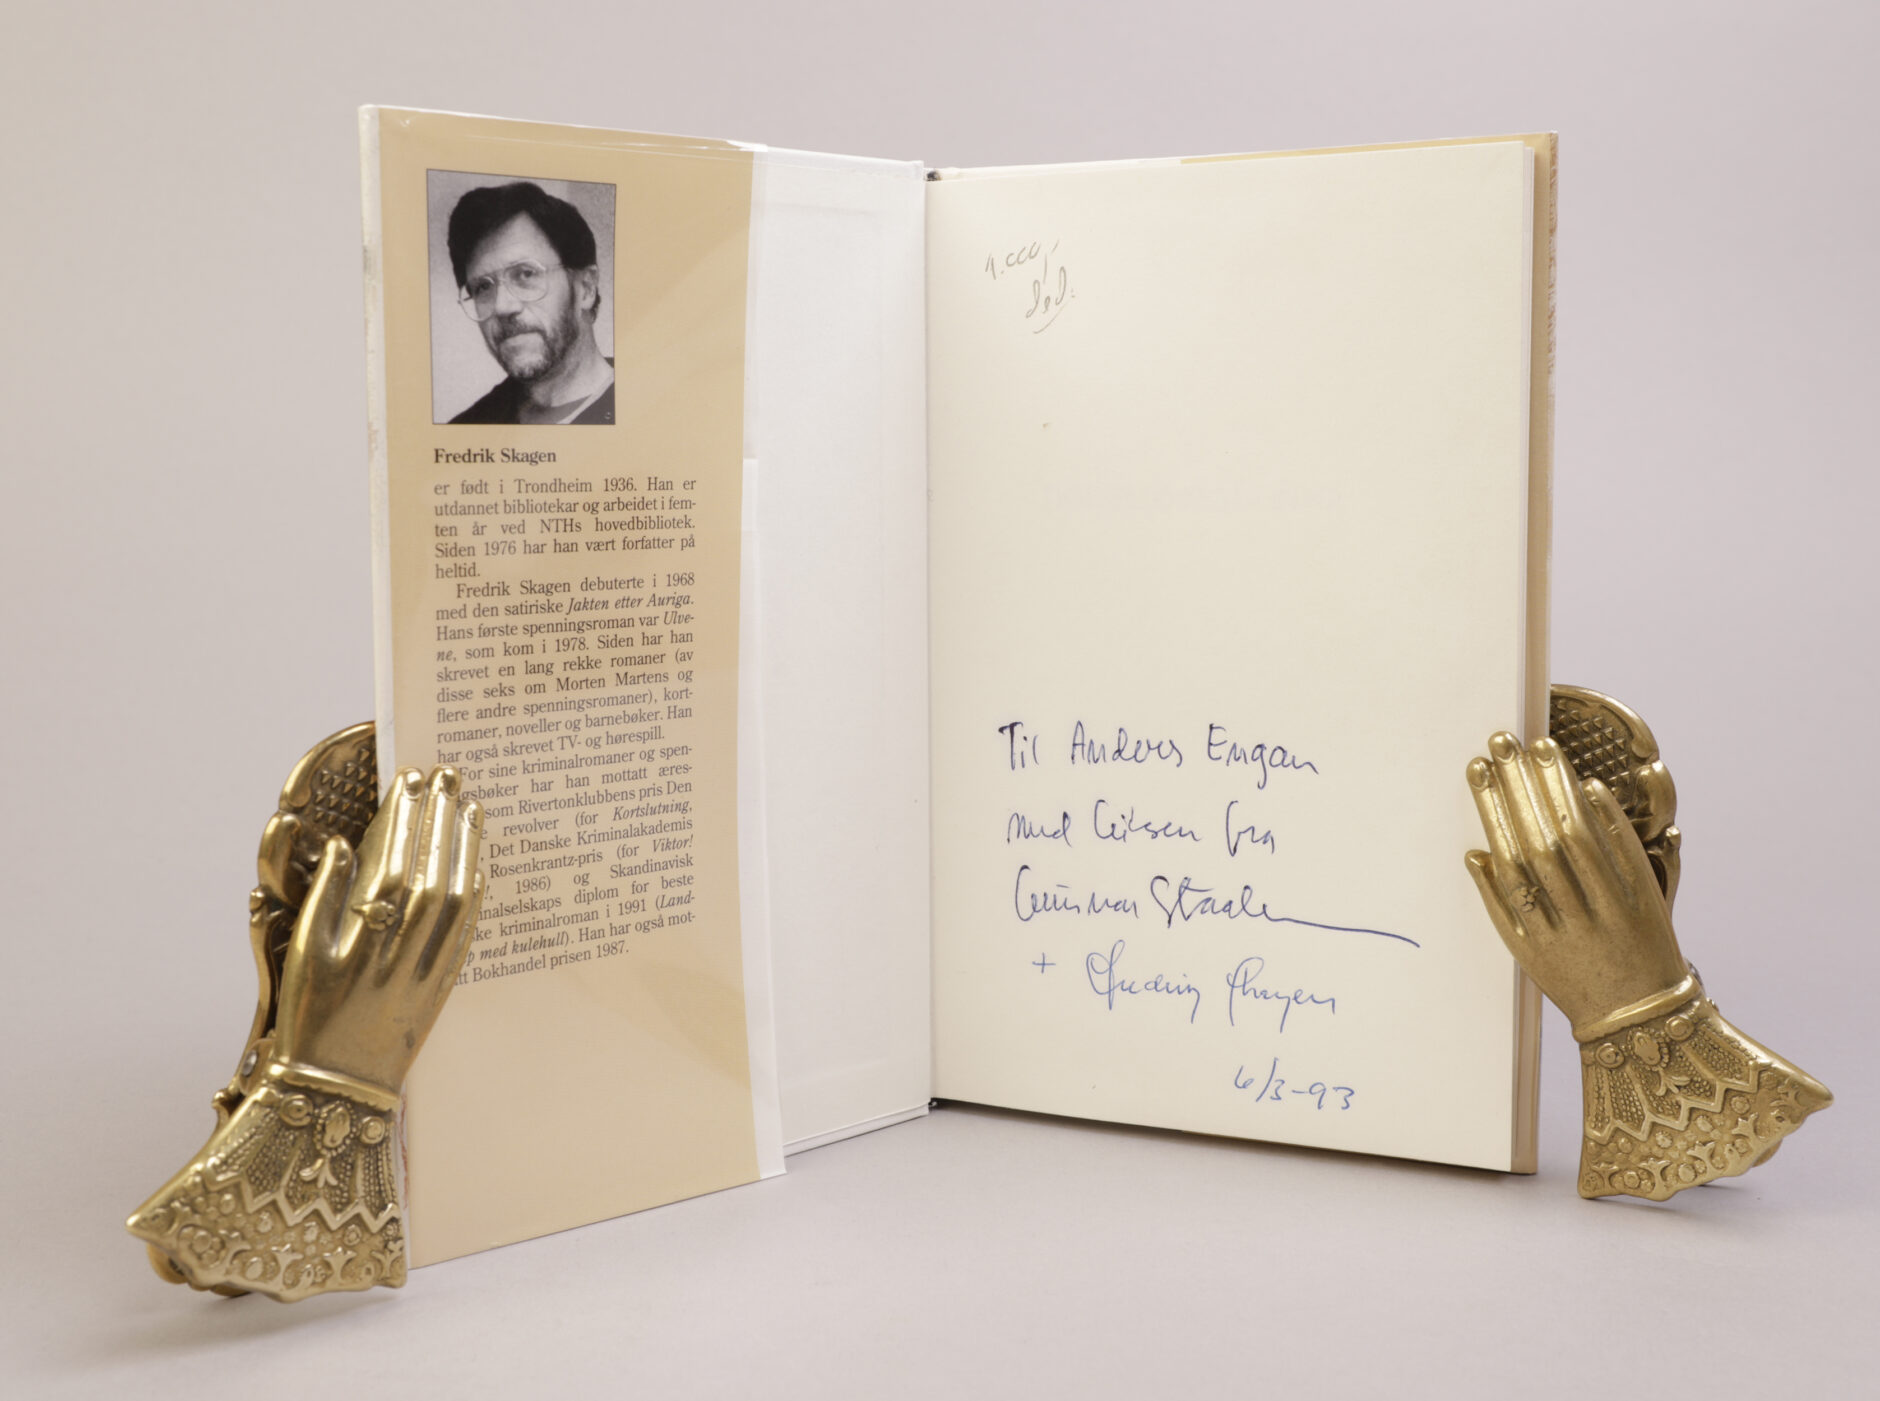 Fredrik Skagen
er født i Trondheim 1936. Han er
utdannet bibliotekar og arbeidet i fem-
ten år ved NTHs hovedbibliotek.
Siden 1976 har han vært forfatter på
heltid.
Fredrik Skagen debuterte i 1968
med den satiriske Jakten etter Auriga.
Hans første spenningsroman var Ulve-
ne, som kom i 1978. Siden har han
skrevet en lang rekke romaner (av
disse seks om Morten Martens og
flere andre spenningsromaner), kort-
romaner, noveller og barnebøker. Han
har også skrevet TV- og hørespill.
For sine kriminalromaner og spen-
gsbøker har han mottatt æres-
som Rivertonklubbens pris Den
e revolver (for Kortslutning,
, Det Danske Kriminalakademis
Rosenkrantz-pris (for Viktor!
!, 1986) og Skandinavisk
inalselskaps diplom for beste
ke kriminalroman i 1991 (Land-
p med kulehull). Han har også mot-
tt Bokhandel prisen 1987.
1.000,-
ded.
Til Anders Engan
med hilsen fra
Gunnar Staalesen
+ Fredrik Skagen
6/3-93